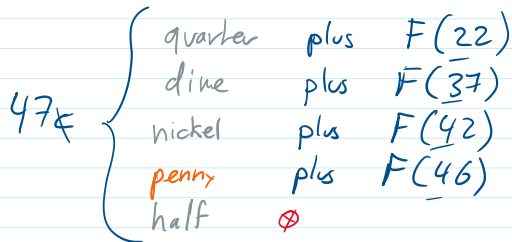 quarter plus F(22)
dime plus F(37)
47¢
nickel plus F(42)
penny plus F(46)
half ∅